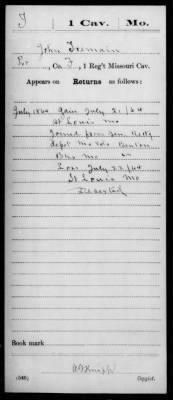 T | 1 Cav. | Mo.
John Tremain
Pvt, Co. F, 1 Reg't Missouri Cav.
Appears on
Returns as follows:
July 1864 Gain July 21/64
St Louis Mo
Joined from Gen. Rctg
depot Mo Vols Benton
Bks Mo
Loss July 22/64
St Louis Mo
Deserted
Book mark
(546)
Copyist.